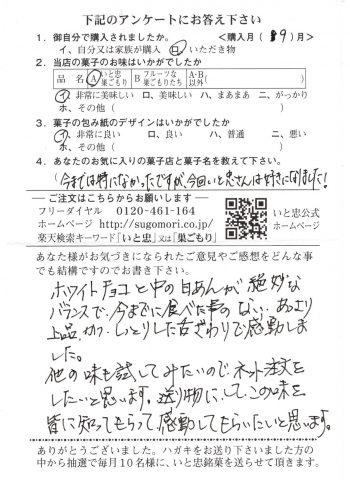 下記のアンケートにお答え下さい
1. 御自分で購入されましたか。 <購入月( 9)月>
イ、自分又は家族が購入 ロ、いただき物
2. 当店の菓子のお味はいかがでしたか
品 名 A いと忠 巣ごもり B フルーツな 巣ごもりたち A・B 以外( )
イ、非常に美味しい ロ、美味しい ハ、まあまあ ニ、がっかり
ホ、その他( )
3. 菓子の包み紙のデザインはいかがでしたか
イ、非常に良い ロ、良い ハ、普通 ニ、悪い
ホ、その他( )
4. あなたのお気に入りの菓子店と菓子名を教えて下さい。
(今までは特になかったですが、今回いと忠さんは好きになりました!
ご注文はこちらからお願いします
フリーダイヤル 0120-461-164
ホームページ http://sugomori.co.jp/
楽天検索キーワード「いと忠」又は「巣ごもり」
いと忠公式
ホームページ
あなた様がお気づきになられたご意見やご感想をどんな事
でも結構ですのでお書き下さい。
ホワイトチョコと中の白あんが絶妙な
バランスで、今までに食べた事のない、あっさり
上品、かつ、しっとりした舌ざわりで感動しま
した。
他の味も試してみたいので、ネット注文を
したいと思います。送り物にして、この味を
皆に知ってもらって、感動してもらいたいと思います。
ありがとうございました。ハガキをお送り下さいました方の
中から抽選で毎月10名様に、いと忠銘菓を送らせて頂きます。